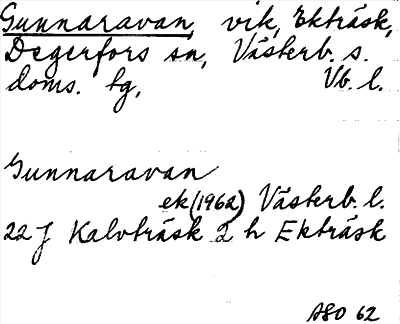 Gunnaravan, vik, Ekträsk,
Degerfors sn, Västerb. s.
doms. tg, Vb. l.
Gunnaravan
ek (1962) Västerb. l.
22 J Kalvträsk 2 h Ekträsk
ASO 62